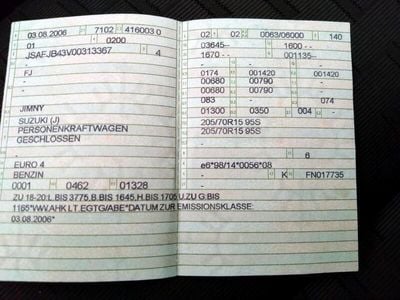 03.08.2006 7102 416003 0
01 0200
JSAFJB43V00313367 4
FJ
-
-
JIMNY
SUZUKI (J)
PERSONENKRAFTWAGEN
GESCHLOSSEN
-
EURO 4
BENZIN
0001 0462 01328
02 02 0063/06000 140
03645-- 1600 --
1670 -- 001135--
- -
0174 001420 001420
00680 00790 -
00680 00790 -
083 - 074
01300 0350 004 -
205/70R15 95S
205/70R15 95S
-
- 6
e6*98/14*0056*08
- K FN017735
-
ZU 18-20:L.BIS 3775,B.BIS 1645,H.BIS 1705*U.ZU G:BIS
1165*WW.AHK LT.EGTG/ABE*DATUM ZUR EMISSIONSKLASSE:
03.08.2006*